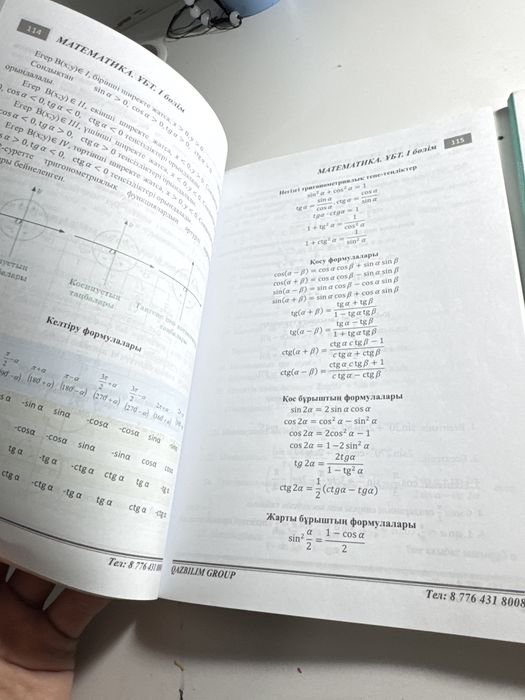 114
МАТЕМАТИКА. ҰБТ. 1 бөлім
Егер B(x;y)∈ I, бірінші ширекте жатса, x > 0, y > 0.
Сондықтан
sin α > 0, cos α > 0, tg α > 0,
Егер B(x;y)∈ II, екінші ширекте жатса, x < 0, y > 0.
cos α < 0, tg α < 0, ctg α < 0 теңсіздіктері орындалады.
Егер B(x;y)∈ III, үшінші ширекте жатса,
tg α > 0, ctg α > 0 теңсіздіктері орындалады.
Егер B(x;y)∈ IV, төртінші ширекте жатса, x > 0, y < 0.
tg α < 0, ctg α < 0 теңсіздіктері орындалады.
суретте тригонометриялық функциялардың
бейнеленген.
Косинустың
таңбалары
Келтіру формулалары
-sin α sinα -cosα -cosα sinα
-cosα -cosα sinα -sinα cosα
tg α -tg α -ctg α ctg α tg α -tg α
ctg α -ctg α -tg α tg α ctg α
Тел: 8 776 431 800
115
МАТЕМАТИКА. ҰБТ. 1 бөлім
Негізгі тригонометриялық теңе-теңдіктер
sin² α + cos² α = 1
tg α = sin α / cos α, ctg α = cos α / sin α
tgα · ctgα = 1
1 + tg² α = 1 / cos² α
1 + ctg² α = 1 / sin² α
Қосу формулалары
cos(α − β) = cos α cos β + sin α sin β
cos(α + β) = cos α cos β − sin α sin β
sin(α − β) = sin α cos β − cos α sin β
sin(α + β) = sin α cos β + cos α sin β
tg(α + β) = tg α + tg β / 1 − tg α tg β
tg(α − β) = tg α − tg β / 1 + tg α tg β
ctg(α + β) = ctg α c tg β − 1 / c tg α + ctg β
ctg(α − β) = ctg α c tg β + 1 / c tg α − ctg β
Қос бұрыштың формулалары
sin 2α = 2 sin α cos α
cos 2α = cos² α − sin² α
cos 2α = 2cos² α − 1
cos 2α = 1 − 2 sin² α
tg 2α = 2tgα / 1 − tg² α
ctg 2α = 1/2 (ctgα − tgα)
Жарты бұрыштың формулалары
sin² α/2 = 1 − cos α / 2
QAZBILIM GROUP
Тел: 8 776 431 8008